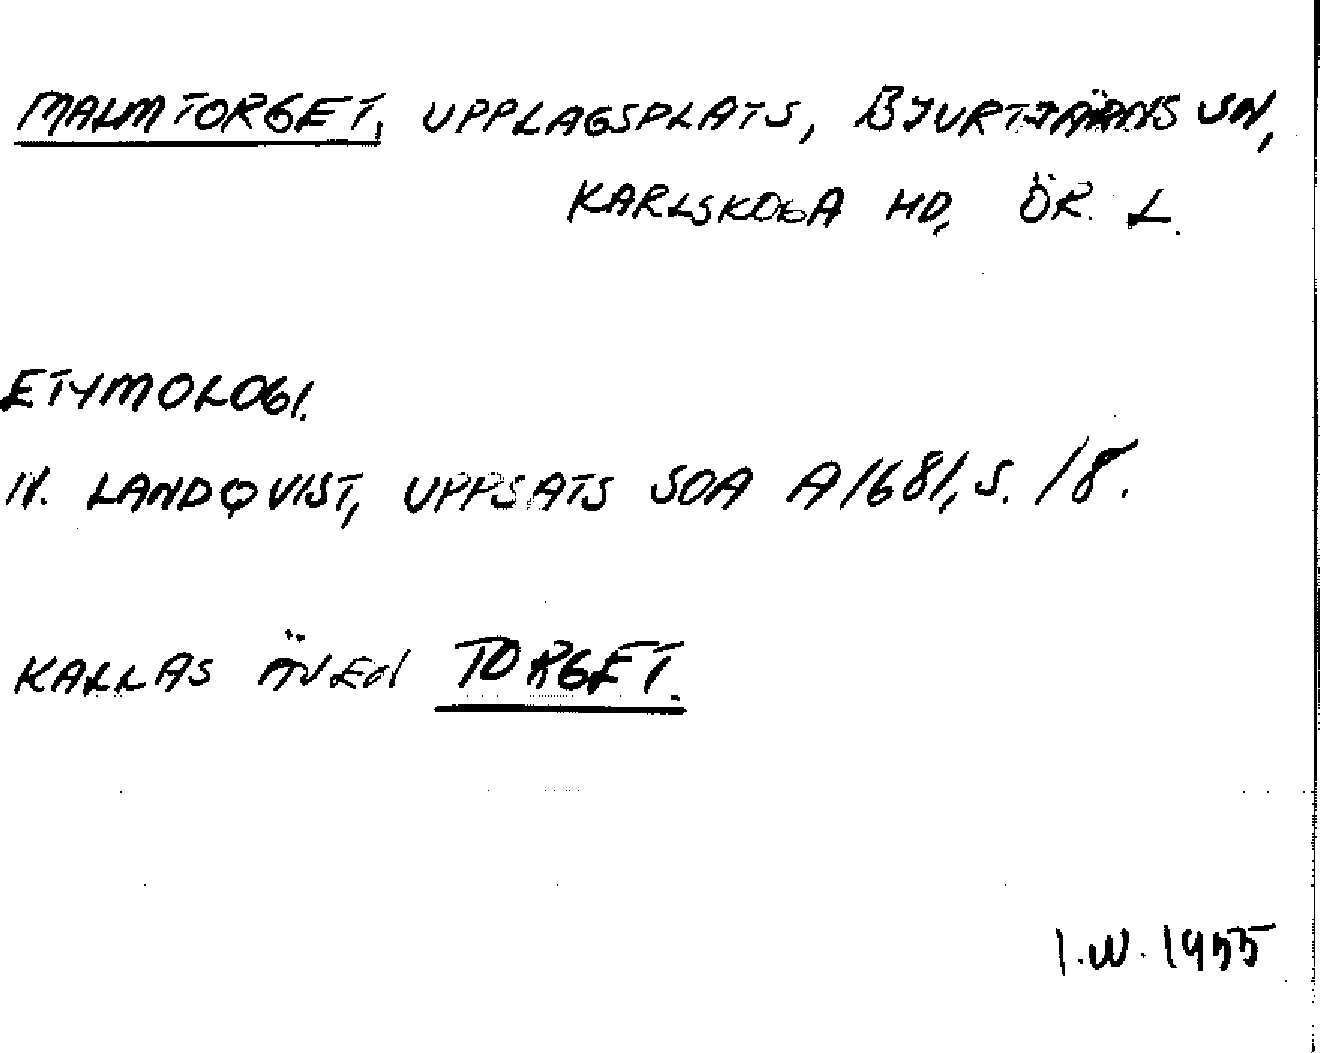 MALMTORGET, UPPLAGSPLATS, BJURTJÄRNS SN,
KARLSKOGA HD, ÖR. L.
ETYMOLOGI.
N. LANDQVIST, UPPSATS SOA A/681, S. 18.
KALLAS ÄVEN TORGET.
I.W. 1955